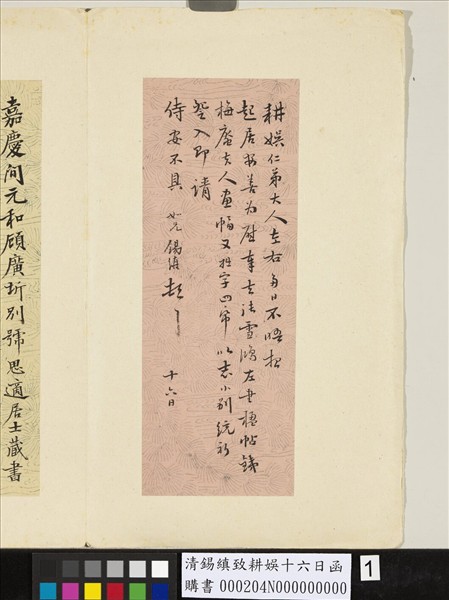 耕娱仁弟大人左右每日不晤想
起居安善为慰奉去法雪漁左書楹帖錢
梅庵夫人畫幅又拙字四帋以志小别統祈
詧入即請
侍安不具 如兄錫縝頓首
十六日
嘉慶间元和顧廣圻別號思適居士藏書
清錫縝致耕娱十六日函
購書 000204N000000000
1